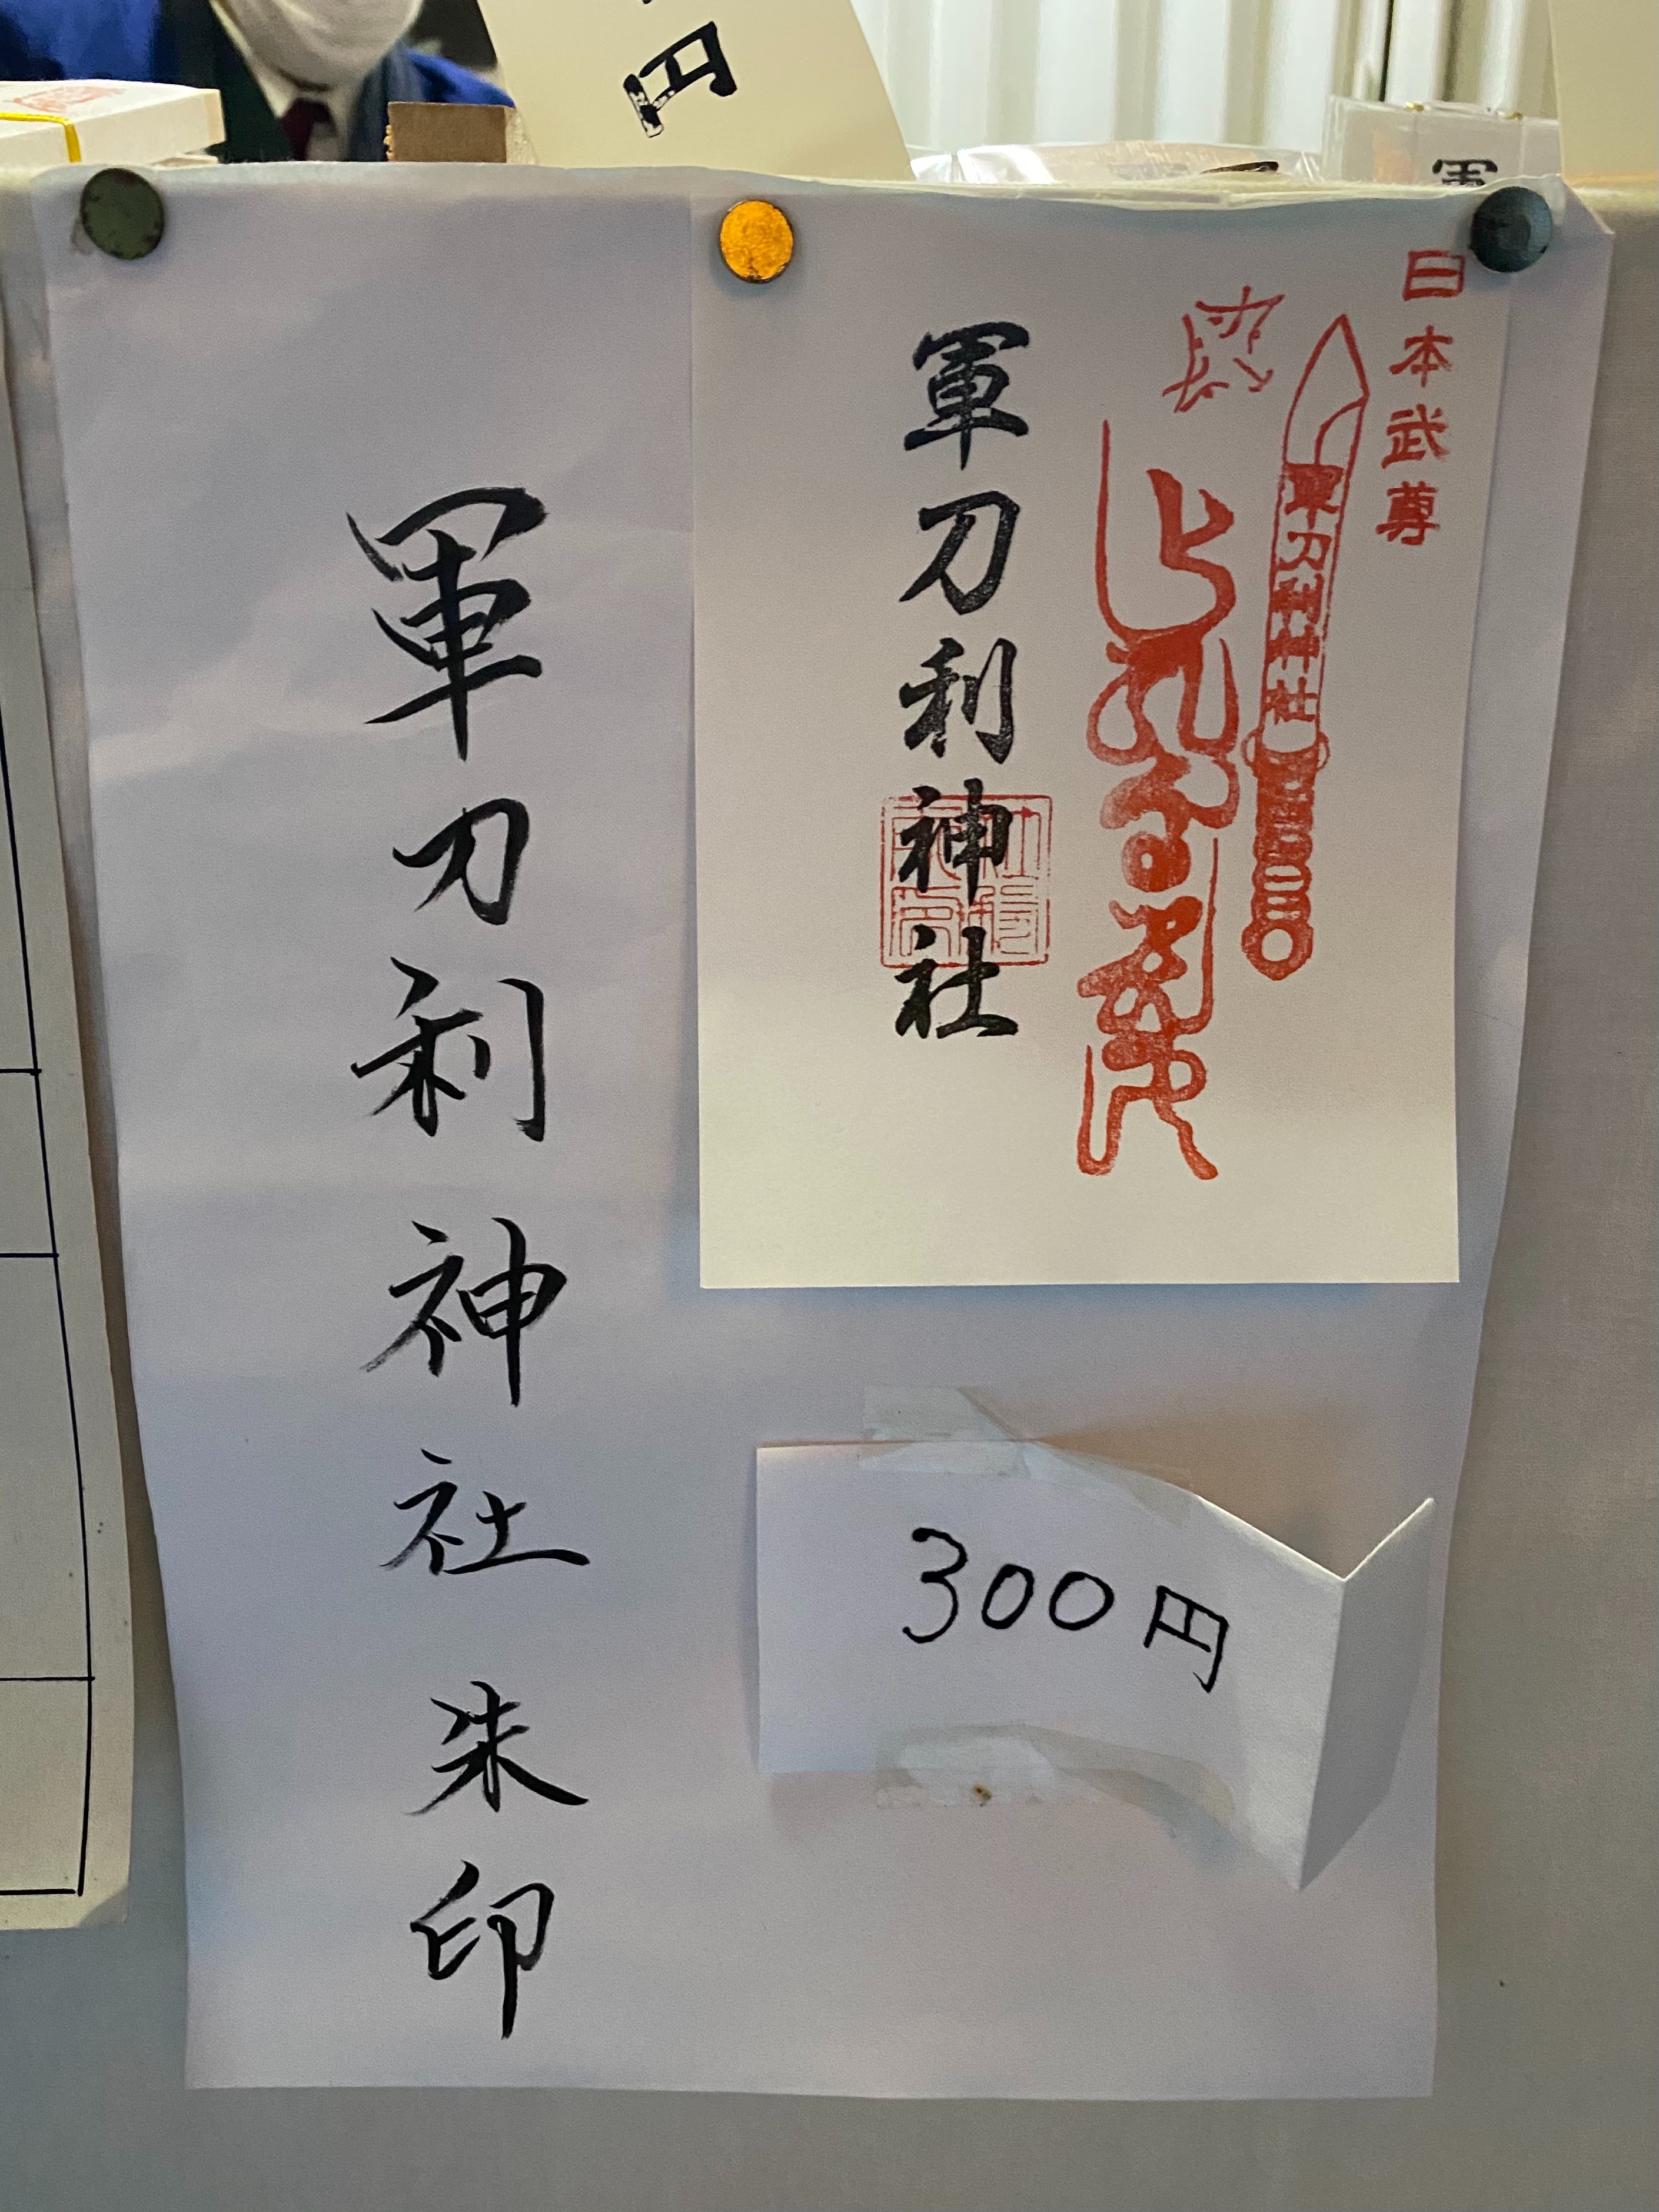 円
軍
日本武尊
軍刀利神社
軍刀利神社
300円
軍刀利神社朱印